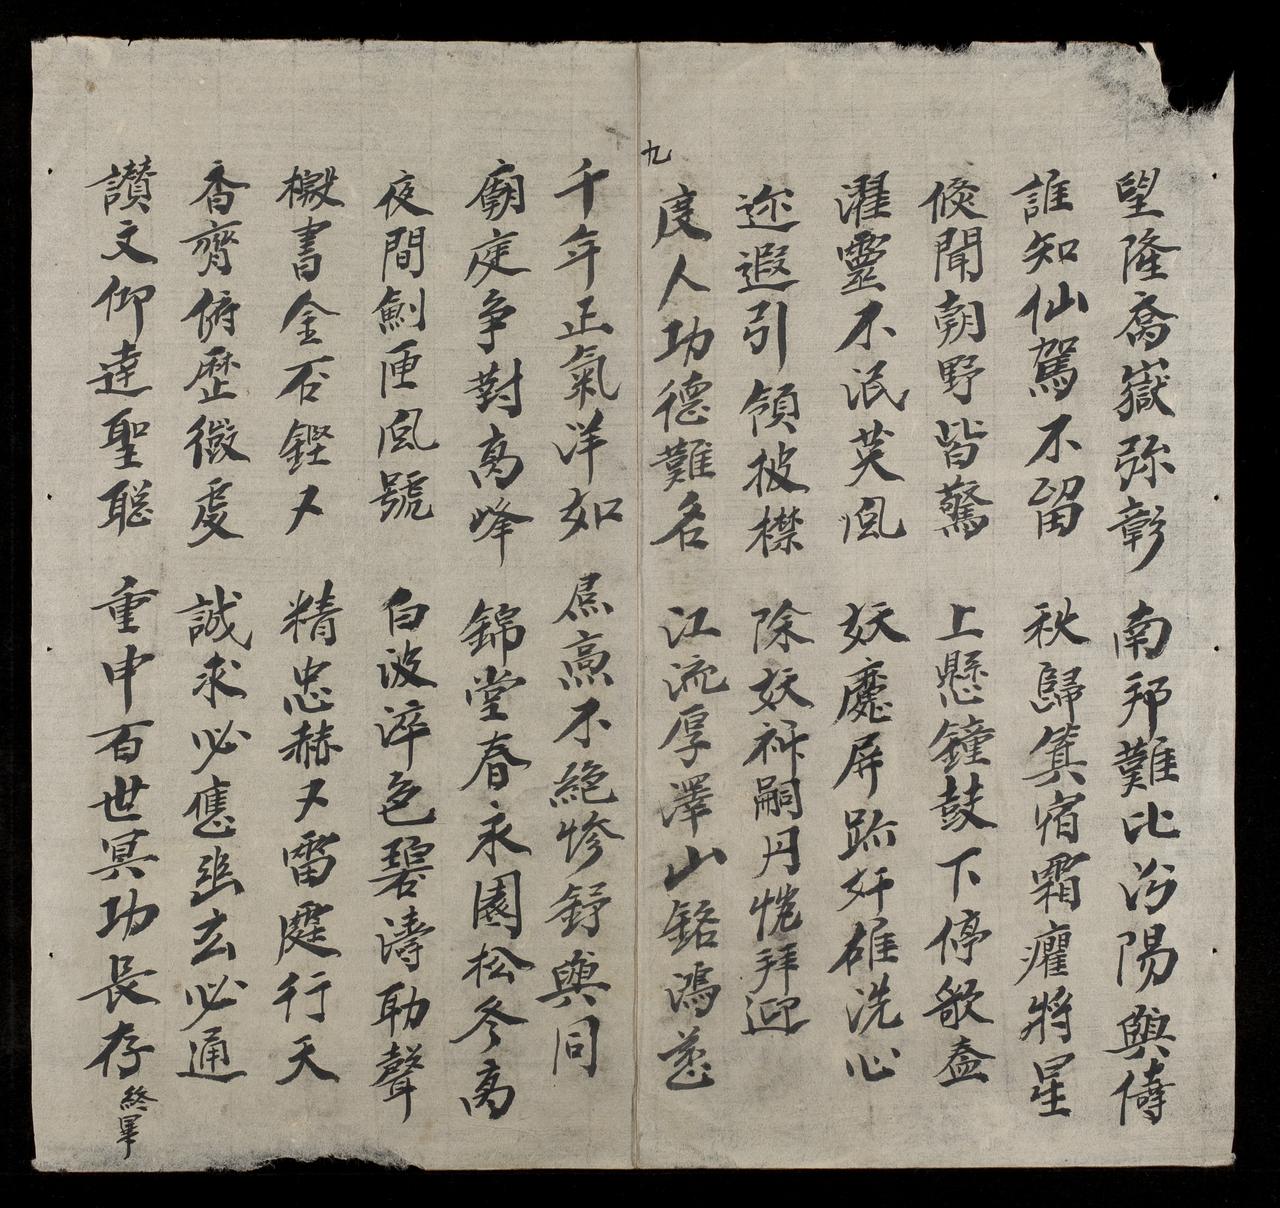 望隆喬嶽弥彰 南邦難比汾陽與儔
誰知仙駕不留 秋歸箕宿霜癯將星
倐聞朝野皆驚 上懸鐘鼓下停歌盍
濯靈不泯英風 妖魔屏跡奸雄洗心
迩遐引領披襟 除妖祈嗣丹悃拜迎
九
度人功德難名 江流厚澤山銘鴻慈
千年正氣洋如 焄高不絶惨舒與同
廟庭争對高峰 錦堂春永園松冬高
夜間劍匣風號 白波淬色碧濤助聲
檄書金石鏗又 精忠赫又雷霆行天
香齊俯歴微虔 誠求必應幽玄必通
讃文仰達聖聡 重申百世冥功長存
終畢